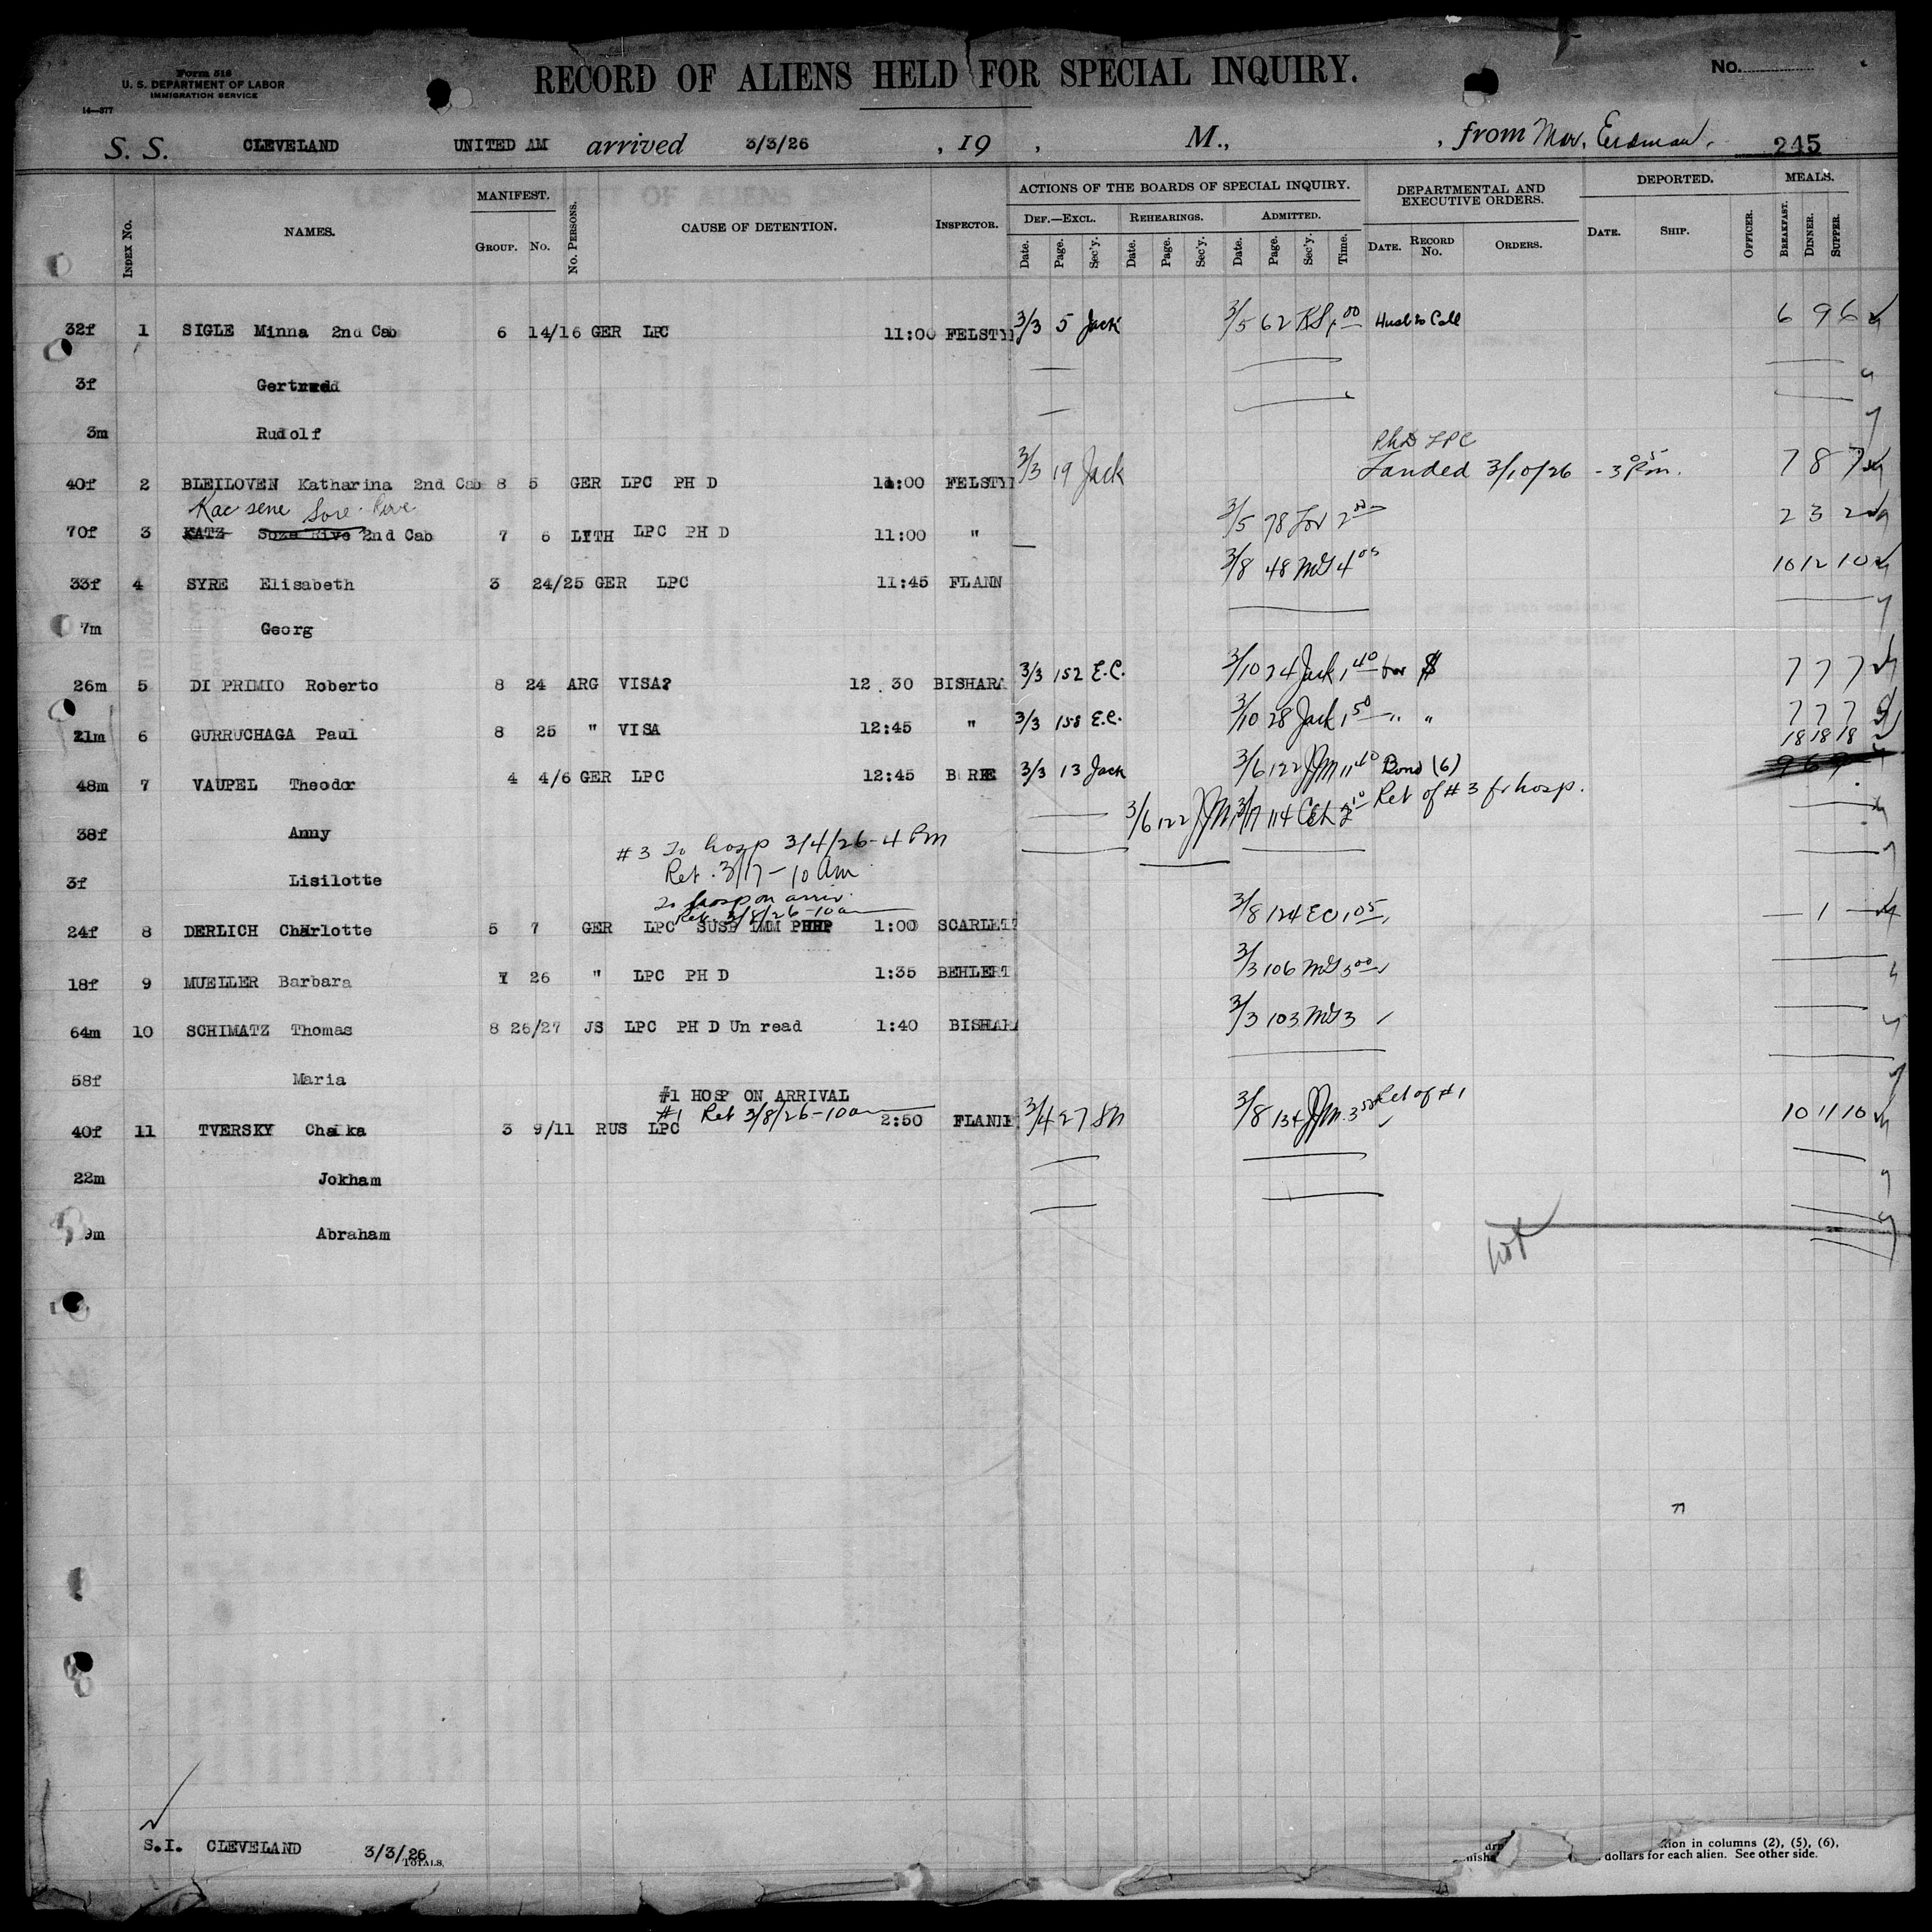 Form 518
U. S. DEPARTMENT OF LABOR
IMMIGRATION SERVICE
14—377
RECORD OF ALIENS HELD FOR SPECIAL INQUIRY.
No.
S. S. CLEVELAND UNITED AM arrived 3/3/26 , 19 , M., , from Mov. Erdman. 245
INDEX No. NAMES. MANIFEST. GROUP. No. No. PERSONS. CAUSE OF DETENTION. INSPECTOR. ACTIONS OF THE BOARDS OF SPECIAL INQUIRY. DEF.—EXCL. Date. Page. Sec'y. REHEARINGS. Date. Page. Sec'y. ADMITTED. Date. Page. Sec'y. Time. DEPARTMENTAL AND EXECUTIVE ORDERS. DATE. RECORD No. ORDERS. DEPORTED. DATE. SHIP. OFFICER. MEALS. BREAKFAST. DINNER. SUPPER.
32f 1 SIGLE Minna 2nd Cab 6 14/16 GER LPC 11:00 FELSTY 3/3 5 Jack 3/5 62 Husb to Call 6 9 6
3f Gertrud
3m Rudolf
Ph D LPC
40f 2 BLEILOVEN Katharina 2nd Cab 8 5 GER LPC PH D 11:00 FELSTY 3/3 19 Jack Landed 3/10/26 - 3 05 Pm. 7 8 7
Rac sene Sore Rive
70f 3 KATZ Soze Rive 2nd Cab 7 6 LITH LPC PH D 11:00 " 3/5 78 2 00 2 3 2
33f 4 SYRE Elisabeth 3 24/25 GER LPC 11:45 FLANN 3/8 48 4 05 10 12 10
7m Georg
26m 5 DI PRIMIO Roberto 8 24 ARG VISA? 12 30 BISHARA 3/3 152 E.C. 3/10 24 Jack 1 40 $ 7 7 7
21m 6 GURRUCHAGA Paul 8 25 " VISA 12:45 " 3/3 158 E.C. 3/10 28 Jack 1 50 " " 7 7 7
18 18 18
48m 7 VAUPEL Theodor 4 4/6 GER LPC 12:45 3/3 13 Jack 3/6 122 JJM 11 40 Bond (6)
38f Anny 3/6 122 JJM 3/17 114 Ret of #3 fr hosp.
#3 To hosp 3/4/26 - 4 Pm
Ret. 3/17 - 10 Am
3f Lisilotte
To hosp on arriv.
Ret. 3/8/26 - 10 a
24f 8 DERLICH Charlotte 5 7 GER LPC SUSP IMM 1:00 SCARLETT 3/8 124 EC 1 05 — 1 —
18f 9 MUELLER Barbara 1 26 " LPC PH D 1:35 BEHLERT 3/3 106 3 00
64m 10 SCHIMATZ Thomas 8 26/27 JS LPC PH D Un read 1:40 BISHARA 3/3 103 3
58f Maria
#1 HOSP ON ARRIVAL
#1 Ret 3/8/26 - 10 a
40f 11 TVERSKY Chaika 3 9/11 RUS LPC 2:50 FLANN 3/4 27 SN 3/8 134 JJM. 3 50 Ret of #1 10 11 10
22m Jokham
9m Abraham
S.I. CLEVELAND 3/3/26
TOTALS.
ion in columns (2), (5), (6),
dollars for each alien. See other side.